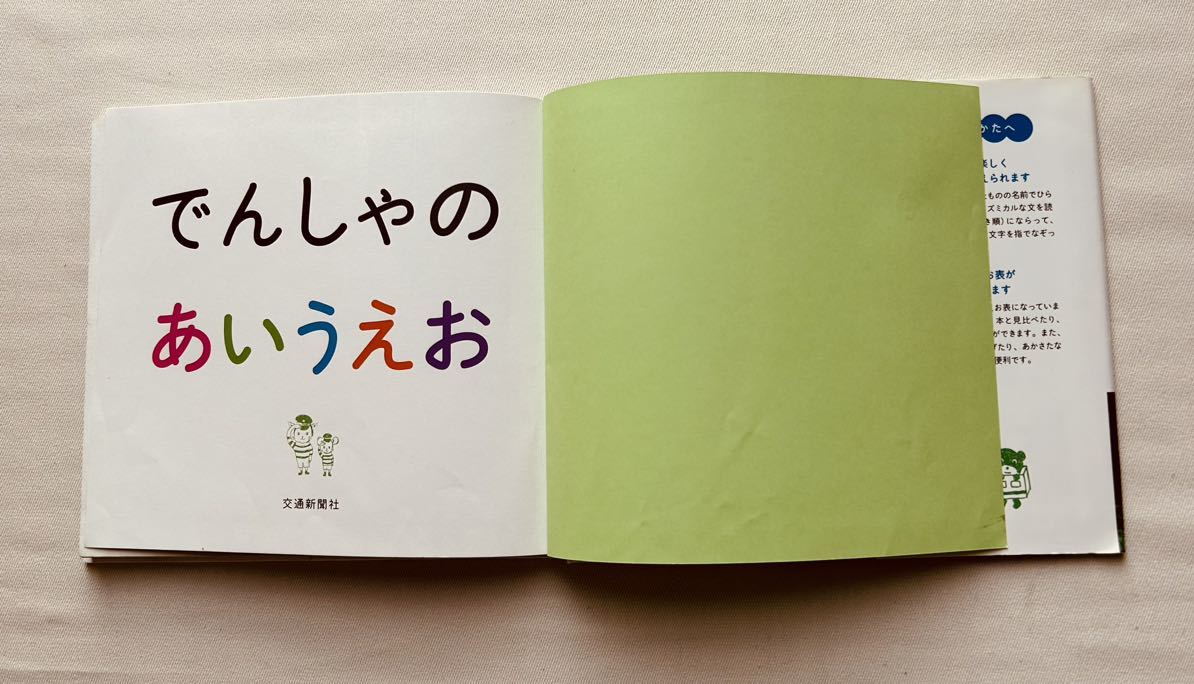 でんしゃの
あいうえお
交通新聞社
かたへ
楽しく
えられます
ものの名前でひら
ズミカルな文を読
き順)にならって、
文字を指でなぞっ
お表が
ます
お表になっていま
本と見比べたり、
ができます。また、
げたり、あかさたな
便利です。